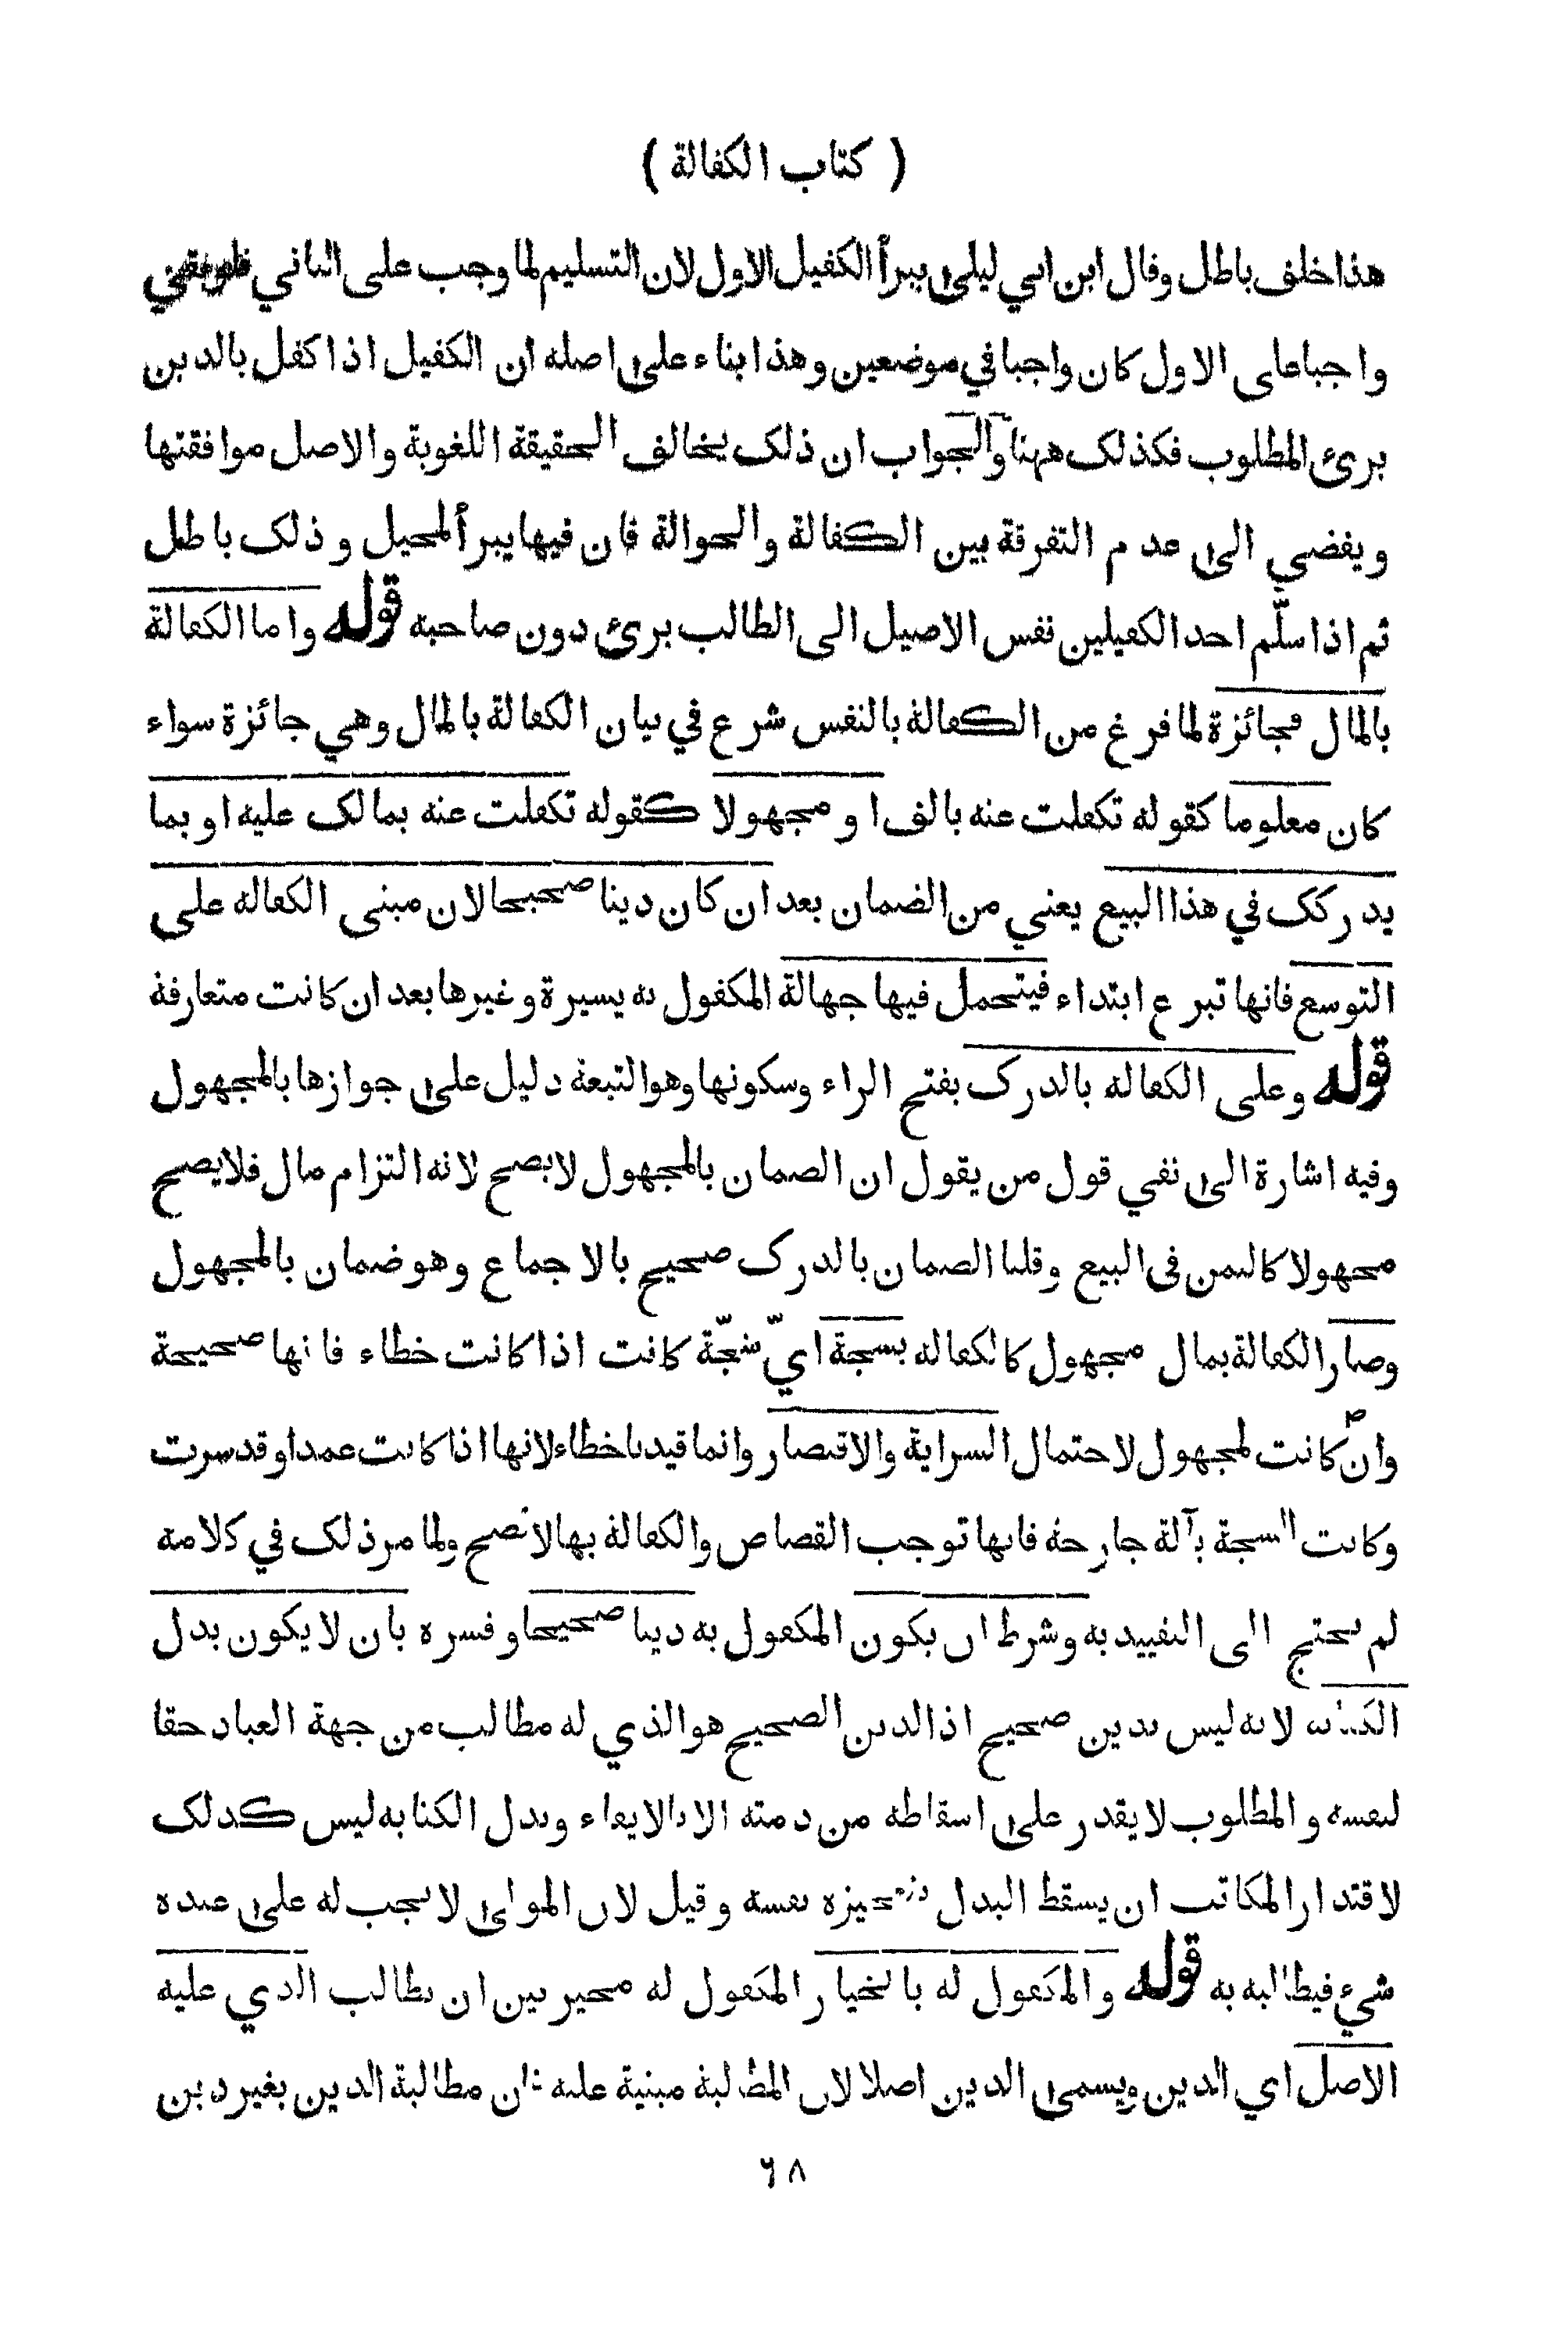 ( كتاب الكفالة )
هذا خلف باطل وقال ابن ابي ليلى يبرأ الكفيل الاول لان التسليم لما وجب على الثاني فلو بقي
واجبا على الاول كان واجبا في موضعين وهذا بناء على اصله ان الكفيل اذا كفل بالدين
برئ المطلوب فكذلك ههنا والجواب ان ذلك يخالف الحقيقة اللغوية والاصل موافقتها
ويفضي الى عدم التفرقة بين الكفالة والحوالة فان فيها يبرأ المحيل وذلك باطل
ثم اذا سلّم احد الكفيلين نفس الاصيل الى الطالب برئ دون صاحبه قوله واما الكفالة
بالمال فجائزة لما فرغ من الكفالة بالنفس شرع في بيان الكفالة بالمال وهي جائزة سواء
كان معلوما كقوله تكفلت عنه بالف او مجهولا كقوله تكفلت عنه بمالك عليه او بما
يدركك في هذا البيع يعني من الضمان بعد ان كان دينا صحيحا لان مبنى الكفالة على
التوسع فانها تبرع ابتداء فيتحمل فيها جهالة المكفول به يسيرة وغيرها بعد ان كانت متعارفة
قوله وعلى الكفالة بالدرك بفتح الراء وسكونها وهو التبعة دليل على جوازها بالمجهول
وفيه اشارة الى نفي قول من يقول ان الضمان بالمجهول لا يصح لانه التزام مال فلا يصح
مجهولا كالثمن في البيع وقلنا الضمان بالدرك صحيح بالاجماع وهو ضمان بالمجهول
وصار الكفالة بمال مجهول كالكفالة بشجة ايّ شجّة كانت اذا كانت خطاء فانها صحيحة
وان كانت لمجهول لاحتمال السراية والاقتصار وانما قيد بالخطاء لانها اذا كانت عمدا وقد سرت
وكانت الشجة بآلة جارحة فانها توجب القصاص والكفالة بها لا تصح ولما مر ذلك في كلامه
لم يحتج الى التقييد به وشرط ان يكون المكفول به دينا صحيحا وفسره بان لا يكون بدل
الكتابة لانه ليس بدين صحيح اذ الدين الصحيح هو الذي له مطالب من جهة العباد حقا
لنفسه والمطلوب لا يقدر على اسقاطه من ذمته الا بالايفاء وبدل الكتابة ليس كذلك
لاقتدار المكاتب ان يسقط البدل بتعجيزه نفسه وقيل لان المولى لا يجب له على عبده
شيء فيطالبه به قوله والمكفول له بالخيار المكفول له مخير بين ان يطالب الذي عليه
الاصل اي الدين ويسمى الدين اصلا لان المطالبة مبنية عليه فان مطالبة الدين بغير دين
٦٨